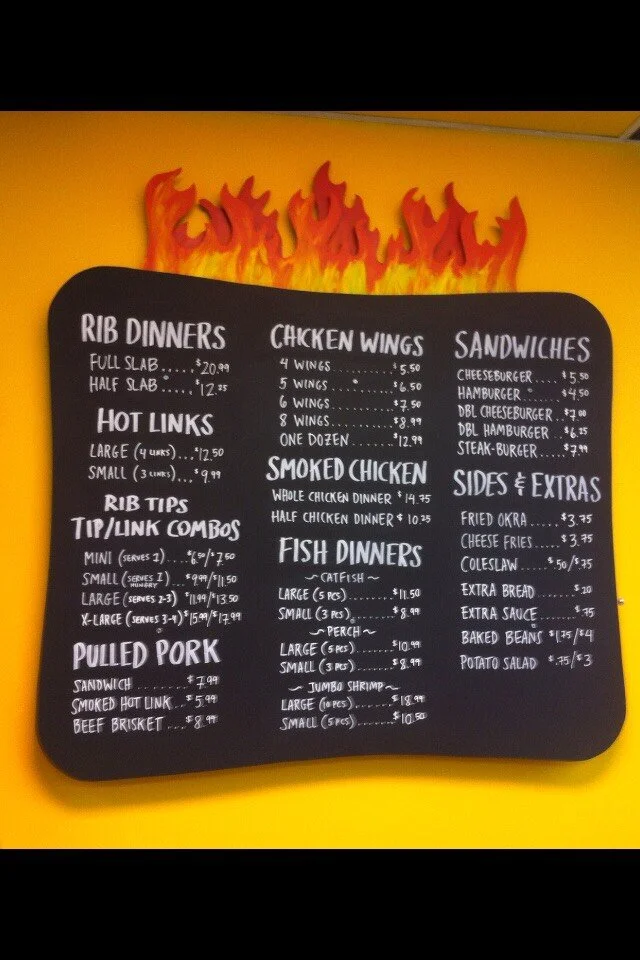 RIB DINNERS
FULL SLAB.....$20.99
HALF SLAB.....$12.25
HOT LINKS
LARGE (4 LINKS)...$12.50
SMALL (3 LINKS)...$9.99
RIB TIPS
TIP/LINK COMBOS
MINI (SERVES 1)....$6.50/$7.50
SMALL (SERVES 1) HUNGRY $9.99/$11.50
LARGE (SERVES 2-3) $11.99/$13.50
X-LARGE (SERVES 3-4) $15.99/$17.99
PULLED PORK
SANDWICH.........$7.99
SMOKED HOT LINK...$5.99
BEEF BRISKET...$8.99
CHICKEN WINGS
4 WINGS.........$5.50
5 WINGS.........$6.50
6 WINGS.........$7.50
8 WINGS.........$8.99
ONE DOZEN........$12.99
SMOKED CHICKEN
WHOLE CHICKEN DINNER $14.75
HALF CHICKEN DINNER $10.25
FISH DINNERS
~CATFISH~
LARGE (5 PCS).......$11.50
SMALL (3 PCS).......$8.99
~PERCH~
LARGE (5 PCS).......$10.99
SMALL (3 PCS).......$8.99
~JUMBO SHRIMP~
LARGE (10 PCS)......$18.99
SMALL (5 PCS).......$10.50
SANDWICHES
CHEESEBURGER....$5.50
HAMBURGER.....$4.50
DBL CHEESEBURGER..$7.00
DBL HAMBURGER..$6.25
STEAK-BURGER.....$7.99
SIDES & EXTRAS
FRIED OKRA.....$3.75
CHEESE FRIES.....$3.75
COLESLAW.....$.50/$.75
EXTRA BREAD.....$.20
EXTRA SAUCE.....$.75
BAKED BEANS $1.75/$4
POTATO SALAD $.75/$3